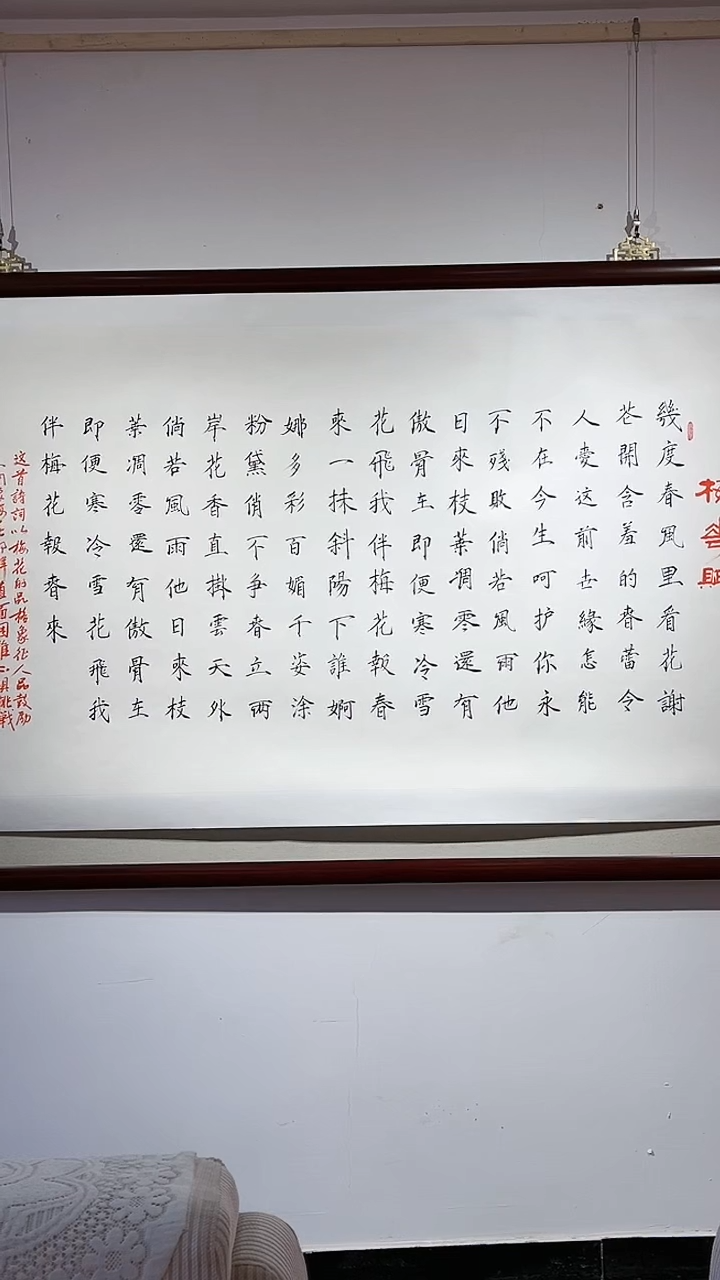 幾度春風里看花謝
花開含羞的春蕾令
人愛这前世緣怎能
不在今生呵护你永
不殘败倘若風雨他
日來枝葉凋零還有
傲骨在即便寒冷雪
花飛我伴梅花報春
來一抹斜陽下誰婀
娜多彩百媚千姿涂
粉黛俏不争春立两
岸花香直掛雲天外
倘若風雨他日來枝
葉凋零還有傲骨在
即便寒冷雪花飛我
伴梅花報春來
这首詩詞以梅花的品格象征人品鼓励
直面困难
挑戰